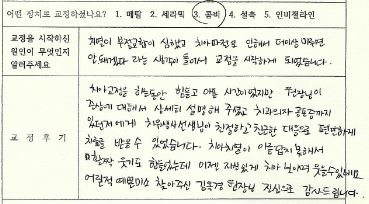 어떤 장치로 교정하셨나요? 1. 메탈 2. 세라믹 3. 콤비 4. 설측 5. 인비절라인
교정을 시작하신 원인이 무엇인지 알려주세요
체면이 부정교합이 심했고 치아파절도 인해서 더이상 미루면
안돼겠다 라는 생각이 들어서 교정을 시작하게 되었습니다.
교정후기
치아교정을 하는동안 힘들고 아플 시간이었지만 원장님이
증상에 대해서 상세히 설명해 주셨고 치과의자 공포증까지
있던 저에게 치위생사선생님이 친절하고 친근한 대응으로 편안하게
치료를 받을수 있었습니다. 치아치열이 아름답지 못해서
마음껏 웃기도 힘들었는데 이젠 자신있게 치아 보이며 웃을수있네요
어릴적 예쁜미소 찾아주신 김욱경 원장님 진심으로 감사드립니다.